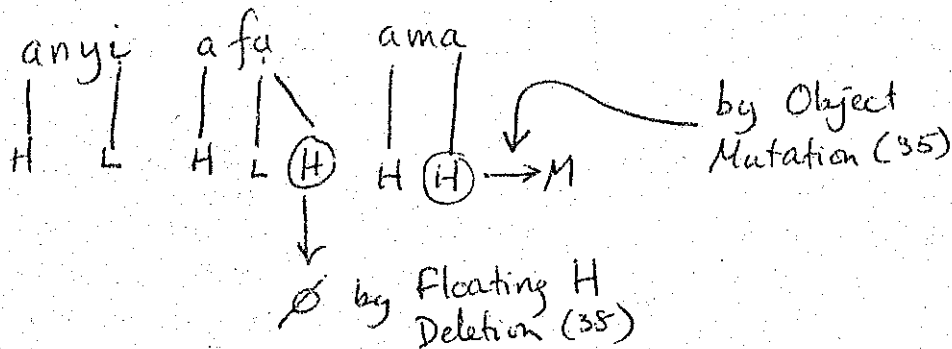 anyị afụ ama
H L H L H H → M
by Object
Mutation (35)
∅ by Floating H
Deletion (35)